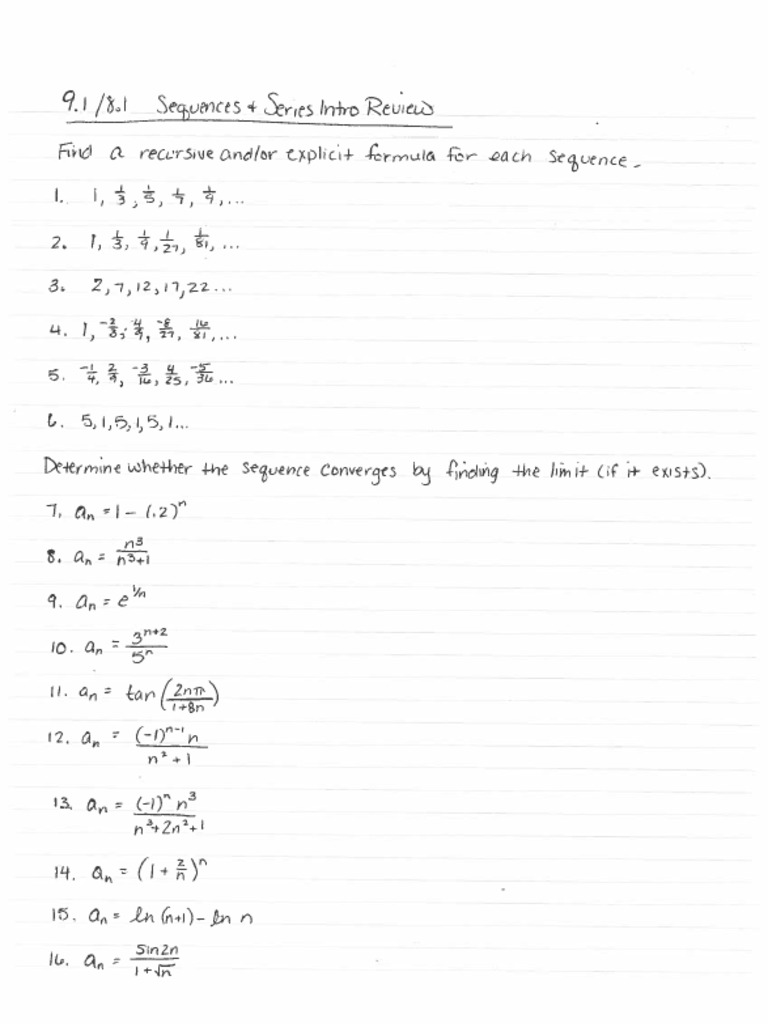 9.1/8.1 Sequences + Series Intro Review
Find a recursive and/or explicit formula for each sequence.
1. 1, 1/3, 1/5, 1/7, 1/9, ...
2. 1, 1/3, 1/9, 1/27, 1/81, ...
3. 2, 7, 12, 17, 22 ...
4. 1, -2/3, 4/9, -8/27, 16/81, ...
5. -1/4, 2/9, -3/16, 4/25, -5/36 ...
6. 5, 1, 5, 1, 5, 1 ...
Determine whether the sequence converges by finding the limit (if it exists).
7. aₙ = 1 - (.2)ⁿ
8. aₙ = n³/(n³+1)
9. aₙ = e^(1/n)
10. aₙ = 3^(n+2)/5ⁿ
11. aₙ = tan(2nπ/(1+8n))
12. aₙ = (-1)^(n-1) n/(n²+1)
13. aₙ = (-1)ⁿ n³/(n³+2n²+1)
14. aₙ = (1 + 2/n)ⁿ
15. aₙ = ln(n+1) - ln n
16. aₙ = sin2n/(1+√n)